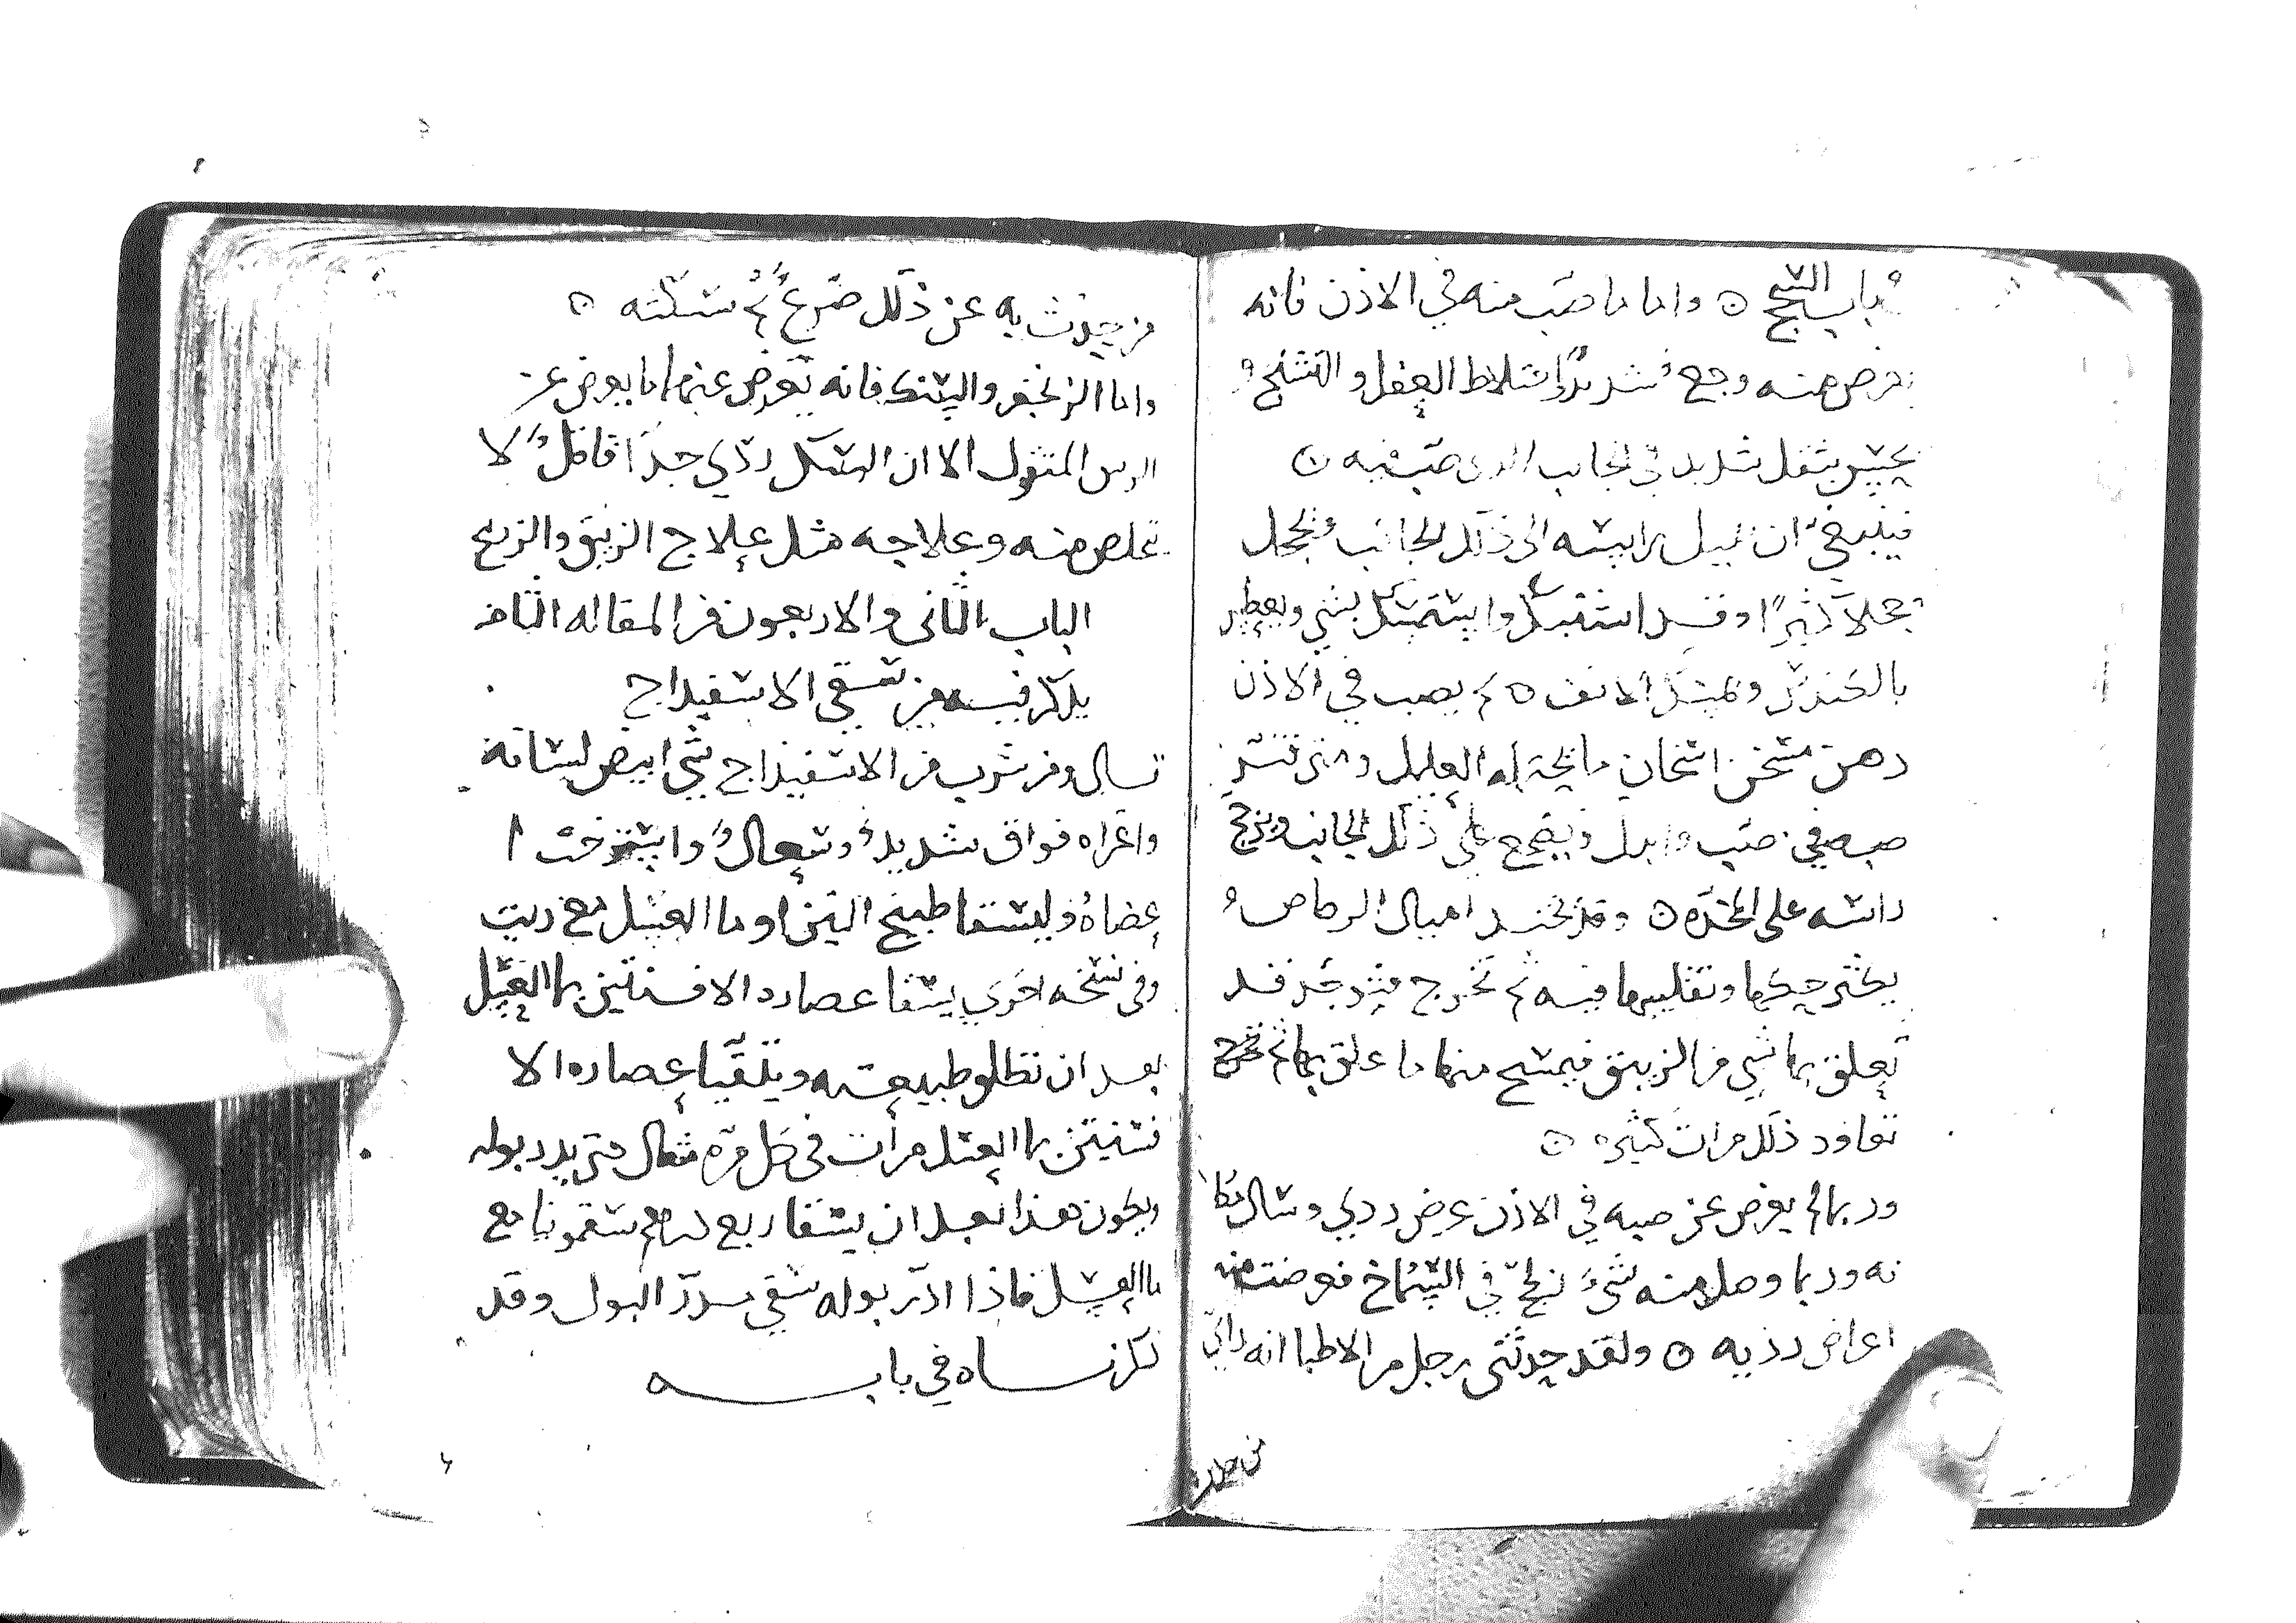 باب السحج ۞ واما ما صب منه في الاذن فانه
يعرض منه وجع شديد واختلاط العقل والتشنج و
يحس بثقل شديد في الجانب الدى صب فيه ۞
فينبغي ان يميل براسه الى ذلك الجانب ويحجل
حجلا كثيرا وقد استمسك بشي ويعطس
بالكندس ويمسك الانف ۞ ثم يصب في الاذن
دهن مسخن اسخان ما يحتمله العليل
صبه في صب وابدل ويضجع على ذلك الجانب
راسه على المخده ۞ وقد تتخذ اميال الرصاص و
يكثر حكها وتقليبها فيه ثم تخرج فتوجد قد
تعلق بها شي من الزيبق فيمسح منها ما علق بها ثم
تعاود ذلك مرات كثيره ۞
وربما لم يعرض عن صبه في الاذن عرض ردي وسال مكا
نه وربما وصل منه شيء في الصماخ فعرضت منه
اعراض رديه ۞ ولقد حدثنى رجل من الاطبا انه راى
من حدث به عن ذلك صرع ثم سكته ۞
واما الزنجفر والسك فانه يعرض عنهما ما يعرض عن
الزيبق المقتول الا ان السك ردي جدا قاتل ولا
تخلص منه وعلاجه مثل علاج الزيبق والزرنيخ
الباب الثانى والاربعون من المقاله الثامنه
يذكر فيه من سقي الاسفيداج
قال ومن شرب من الاسفيداج شي ابيض لسانه
واعتراه فواق شديد وسعال واسترخت ا
عضاه فليسقا طبيخ التين او ما العسل مع زيت
وفى نسخه اخرى يسقا عصاره الافسنتين بما العسل
بعد ان تطلق طبيعته ويتقيا عصاره الا
فسنتين بما العسل مرات في كل مره مثقال حتى يدر بوله
ويكون هذا بعد ان يسقا ربع درهم سقمونيا مع
ما العسل فاذا ادر بوله سقي مدر البول وقد
ذكرناه في بابه